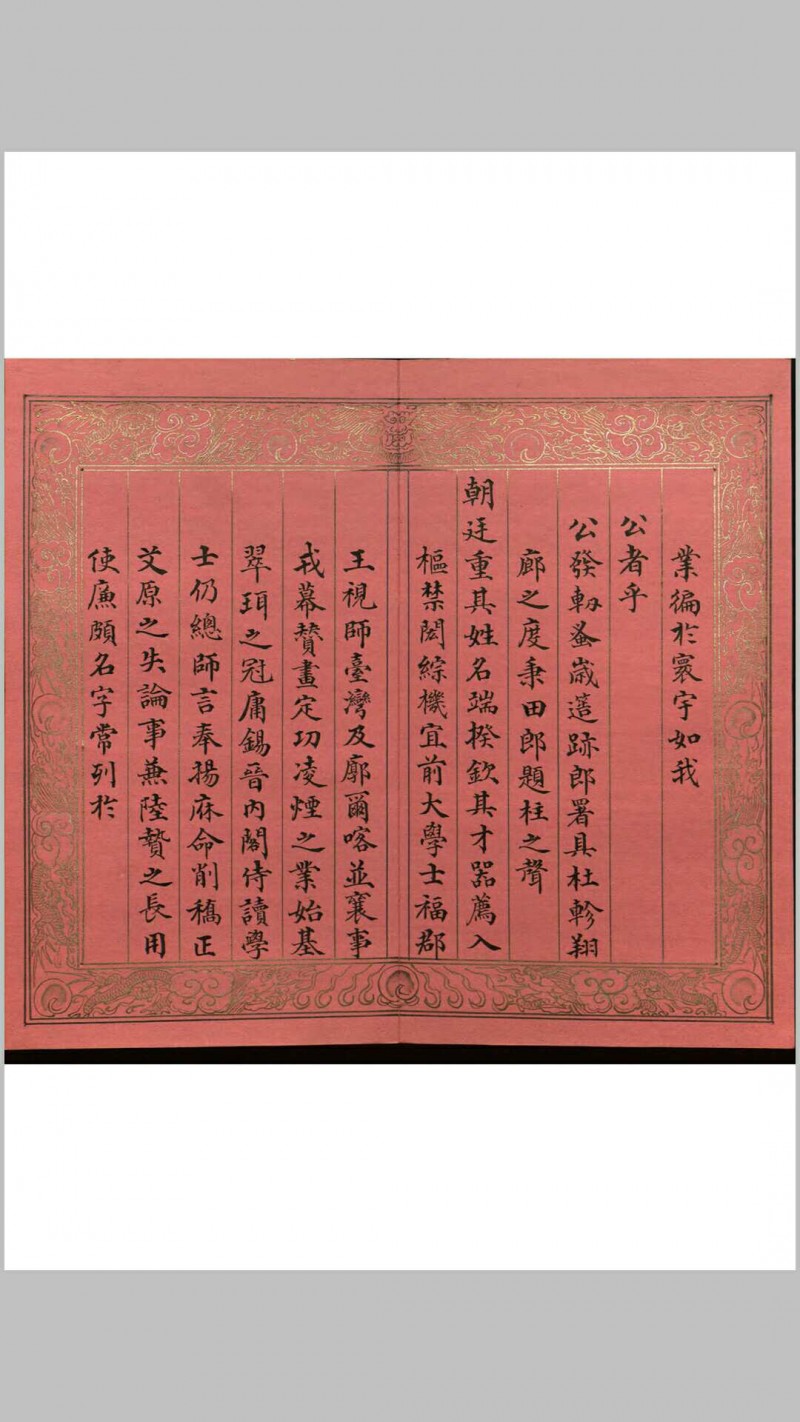 業徧於寰宇如我
公者乎
公發軔蚤歲簉跡郎署具杜軫翔
廊之度秉田郎題柱之聲
朝廷重其姓名端揆欽其才器薦入
樞禁閎綜機宜前大學士福郡
王視師臺灣及廓爾喀並襄事
戎幕贊畫定功凌煙之業始基
翠珥之冠庸錫晉內閣侍讀學
士仍總師言奉揚庥命削稿正
艾原之失論事兼陸贄之長用
使廉頗名字常列於